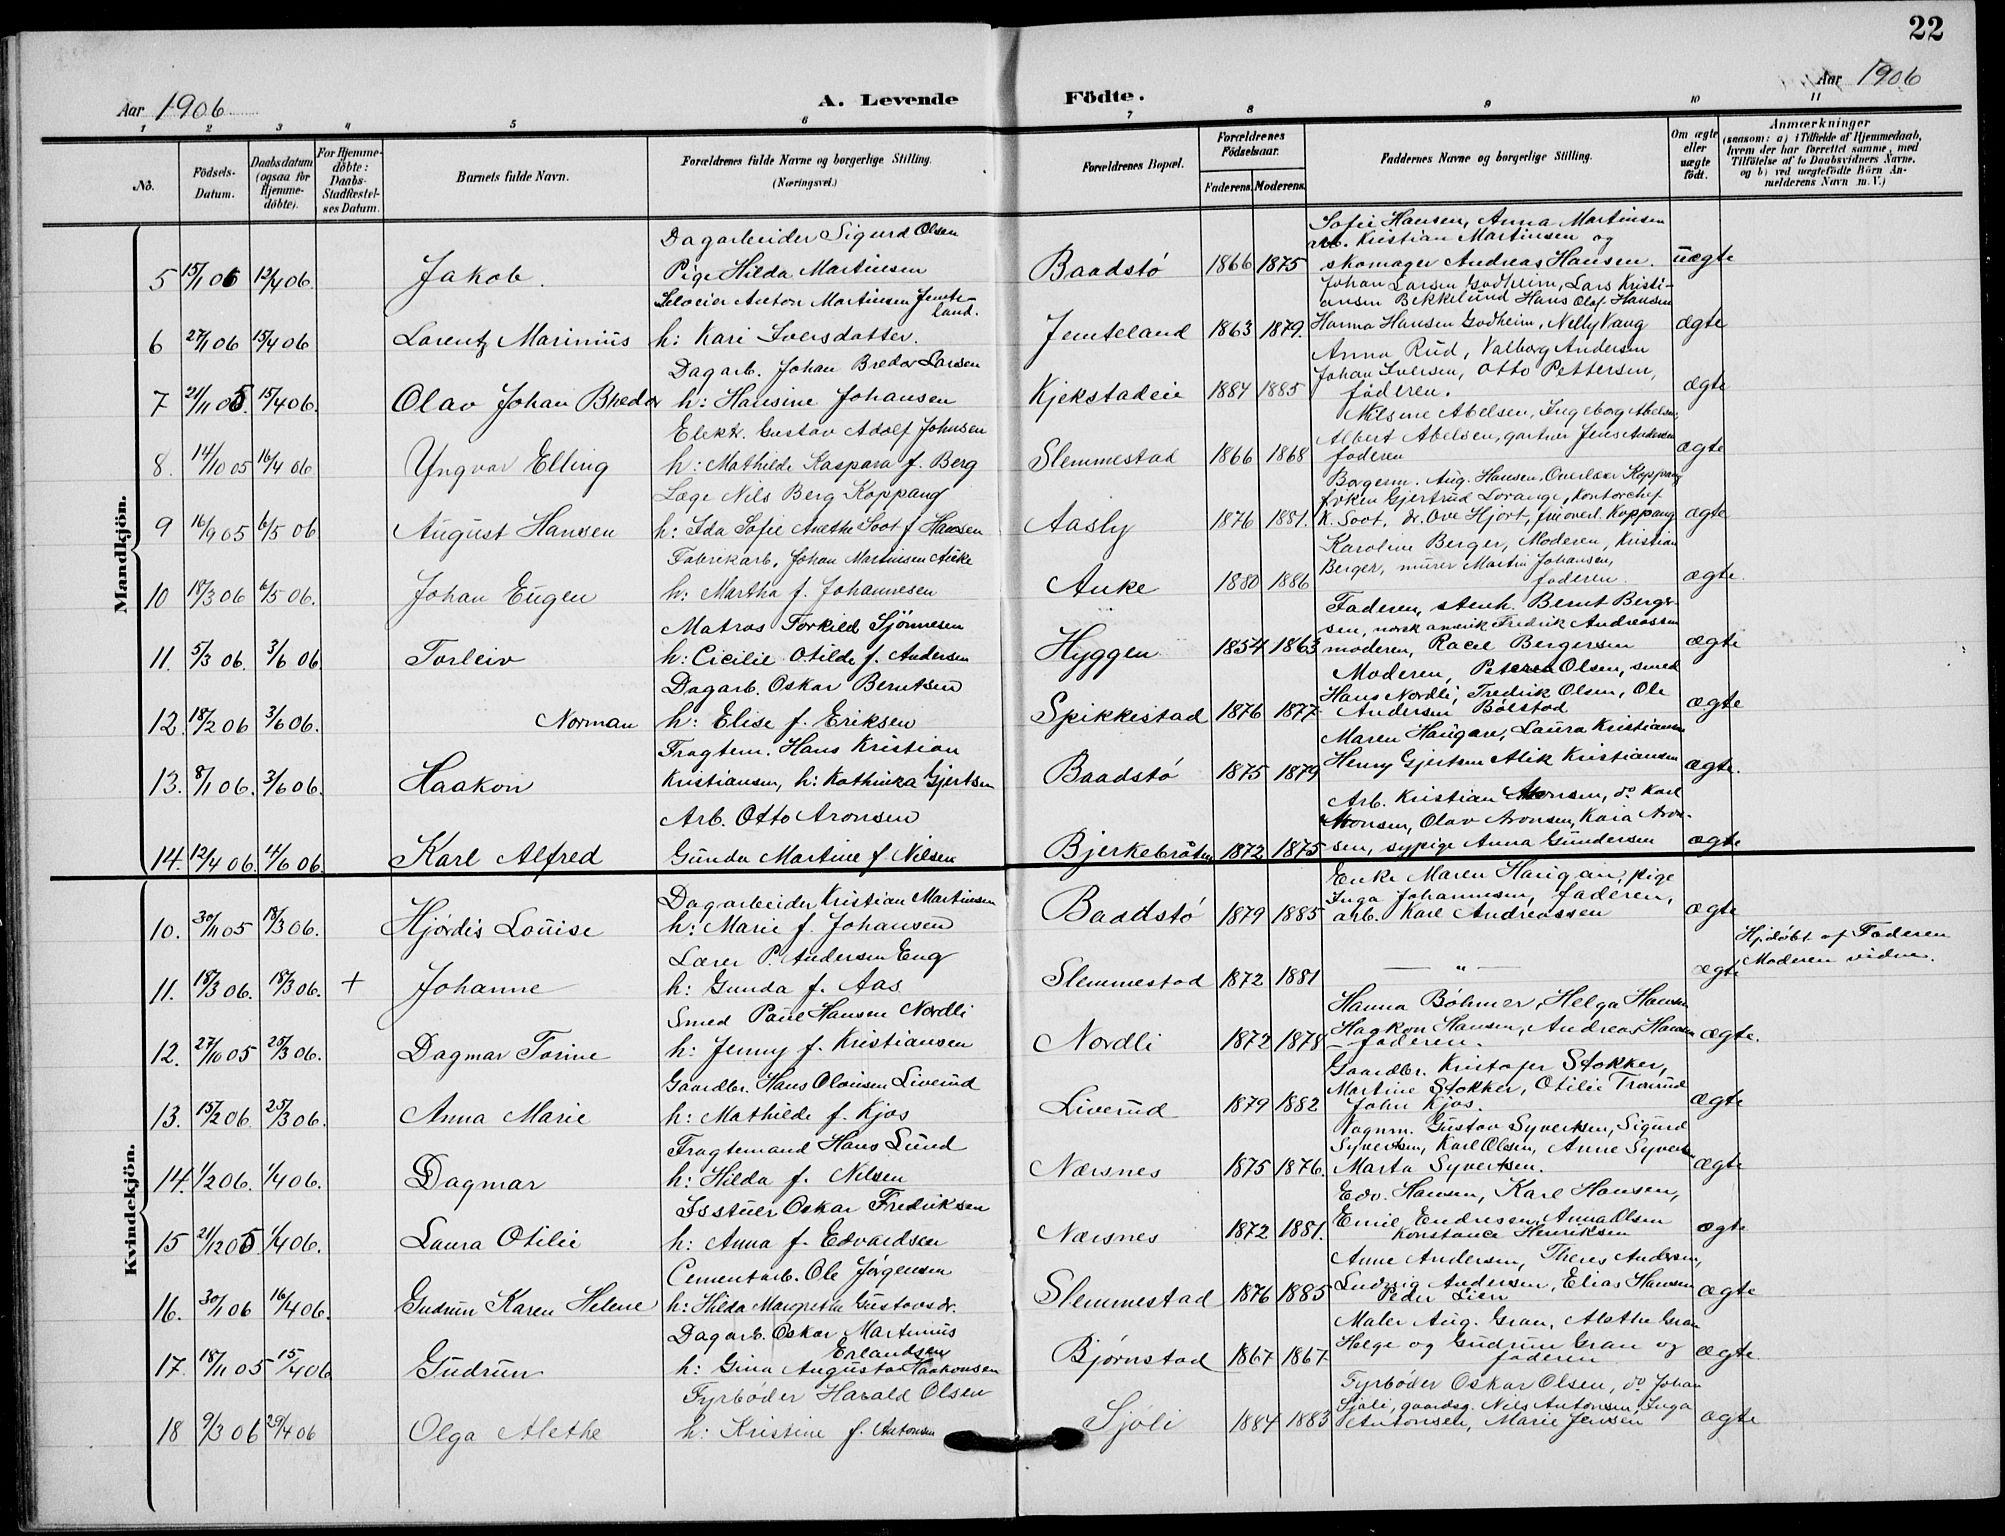 22
Aar 1906
A. Levende
Födte.
Aar 1906
1 2 3 4 5 6 7 8 9 10 11
No.
Födsels-Datum.
Daabsdatum (ogsaa for Hjemme-döbte).
For Hjemme-döbte: Daabs-Stadfæstel-ses Datum.
Barnets fulde Navn.
Forældrenes fulde Navne og borgerlige Stilling.
(Næringsvei.)
Forældrenes Bopæl.
Forældrenes Födselsaar.
Faderens. Moderens.
Faddernes Navne og borgerlige Stilling.
Om ægte eller uægte födt.
Anmærkninger
(saasom: a) i Tilfælde af Hjemmedaab, hvem der har forrettet samme, med Tilföielse af to Daabsvidners Navne, og b) ved uægtefödte Börn An-melderens Navn m. V.)
Mandkjön.
Dagarbeider Sigurd Olsen
Sofie Hansen, Anna Martinsen
arb. Kristian Martinsen og
5 15/1 06 12/4 06. Jakob. Pige Hilda Martinsen Baadstö 1866 1875 skomager Andreas Hansen. uægte
Seloeier Anton Martinsen Jemte-
land.
Johan Larsen Godheim, Lars Kristi-
ansen Bekkelund Hans Olaf Hansen
6 27/1 06 15/4 06 Lorentz Marinius h: Kari Iversdatter. Jemteland 1863 1879. Hanna Hansen Godheim, Nelly Vang ægte
Dagarb. Johan Bredor Larsen
Anna Rud, Valborg Andersen
Johan Iversen, Otto Pettersen,
7 21/11 05. 15/4 06. Olav Johan Bredor h: Hansine Johansen Kjekstadeie 1884 1885 faderen. ægte
Elektr. Gustav Adolf Johnsen
Nilsine Abelsen, Ingeborg Abelsen,
Albert Abelsen, gartner Jens Andersen
8. 14/10 05 16/4 06 Yngvar Elling h: Mathilde Kaspara f. Berg Slemmestad 1866 1868 faderen ægte
Læge Nils Berg Koppang
Borgerm. Aug. Hansen, Overlær Koppang
frøken Gjertrud Lorange, Kontorchef
9 16/9 05 6/5 06 August Hansen h: Ida Sofie Anethe Soot f Hansen Aasly 1876 1881. K. Soot, dr. Ove Hjort, fru overl. Koppang ægte
Fabrikarb. Johan Martinsen Auke
Karoline Berger, Moderen, Kristian
Berger, murer Martin Johansen,
10 18/3 06 6/5 06. Johan Eugen h: Martha f. Johannesen Auke 1880 1886 faderen. ægte.
Matros Torkild Sjönnesen
Faderen, stenh. Bernt Berger-
sen, norsk amerik Fredrik Andreassen
11. 5/3 06. 3/6 06 Torleiv h: Cicilie Otilde f. Andersen Hyggen 1854 1863 moderen, Racel Bergersen ægte
Dagarb. Oskar Berntsen
Moderen, Petrea Olsen, smed
Hans Nordli, Fredrik Olsen, Ole
12. 18/2 06 3/6 06. Norman h: Elise f. Eriksen Spikkestad 1876 1877 Andersen Bölstad ægte
Fragtem. Hans Kristian
Maren Haugan, Laura Kristiansen
13. 8/1 06. 3/6 06. Haakon Kristiansen, h: Kathinka Gjertsen Baadstö 1875 1879 Henry Gjertsen Alik Kristiansen ægte.
Arb. Otto Aronsen
Arb. Kristian Aronsen, do Karl
Aronsen, Olav Aronsen, Kaia Aron-
14. 12/4 06. 4/6 06. Karl Alfred Gunda Martine f Nilsen Bjerkebråten 1872 1875 sen, sypige Anna Gundersen ægte
Kvindekjön.
Dagarbeider Kristian Martinsen
Enke Maren Haugan, pige
Inga Johannesen, faderen,
10. 30/11 05 18/3 06. Hjördis Louise h: Marie f. Johansen Baadstö 1879 1885 arb. Karl Andreassen ægte
Lærer P. Andersen Eng
Hjdöbt af Faderen
11. 18/3 06. 18/3 06. + Johanne h: Gunda f. Aas Slemmestad 1872 1881 — " — ægte Moderen vidne.
Smed Paul Hansen Nordli
Hanna Böhmer, Helga Hansen
Haakon Hansen, Andreas Hansen
12. 27/10 05 25/3 06. Dagmar Torine h: Jenny f. Kristiansen Nordli 1872 1878 faderen. ægte.
Gaardbr. Hans Olausen Liverud
Gaardbr. Kristofer Stokker,
Martine Stokker, Otilie Tronrud
13. 15/2 06. 25/3 06. Anna Marie h: Mathilde f. Kjos Liverud 1879 1882 John Kjos. ægte
Fragtemand Hans Lund
Vognm. Gustav Syvertsen, Sigurd
Syvertsen, Karl Olsen, Anne Syvertsen
14. 1/2 06. 1/4 06. Dagmar h: Hilda f. Nilsen Nærsnes 1875 1876. Marta Syvertsen. ægte
Isstuer Oskar Fredriksen
Edv. Hansen, Karl Hansen,
Emil Endresen, Anna Olsen
15 21/12 05 1/4 06. Laura Otilie h: Anna f. Edvardsen Nærsnes 1872 1881. Konstance Henriksen ægte
Cementarb. Ole Jörgensen
Anne Andersen, Theres Andersen,
Ludvig Andersen, Elias Hansen
16. 30/1 06 16/4 06. Gudrun Karen Helene h: Hilda Margrethe Gustavsdr. Slemmestad 1876 1885 Peder Lien ægte
Dagarb. Oskar Martinius
Erlandsen
Maler Aug. Gran, Alethe Gran
Helge og Gudrun Gran og
17. 18/11 05 15/4 06 Gudrun h: Gina Augusta Haakonsen Bjørnstad 1867 1867 faderen ægte
Fyrböder Harald Olsen
Fyrböder Oskar Olsen, do Johan
Sjöli, gaardsg. Nils Antonsen, Inga
18 9/3 06 29/4 06 Olga Alethe h: Kristine f. Antonsen Sjöli 1884 1883 Antonsen, Marie Jensen ægte